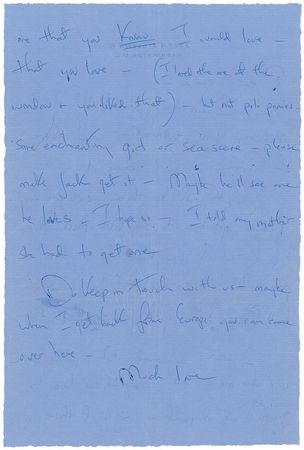 one that you Know I would love –
that you love – (I loved the one of the
window & you liked that) – but not polo ponies
Some enchanting girl or sea scene – please
make Jack get it – Maybe he'll see one
he loves – I hope so – I told my mother
she had to get one
Do keep in touch with us – maybe
when I get back from Europe you can come
over here –
Much love